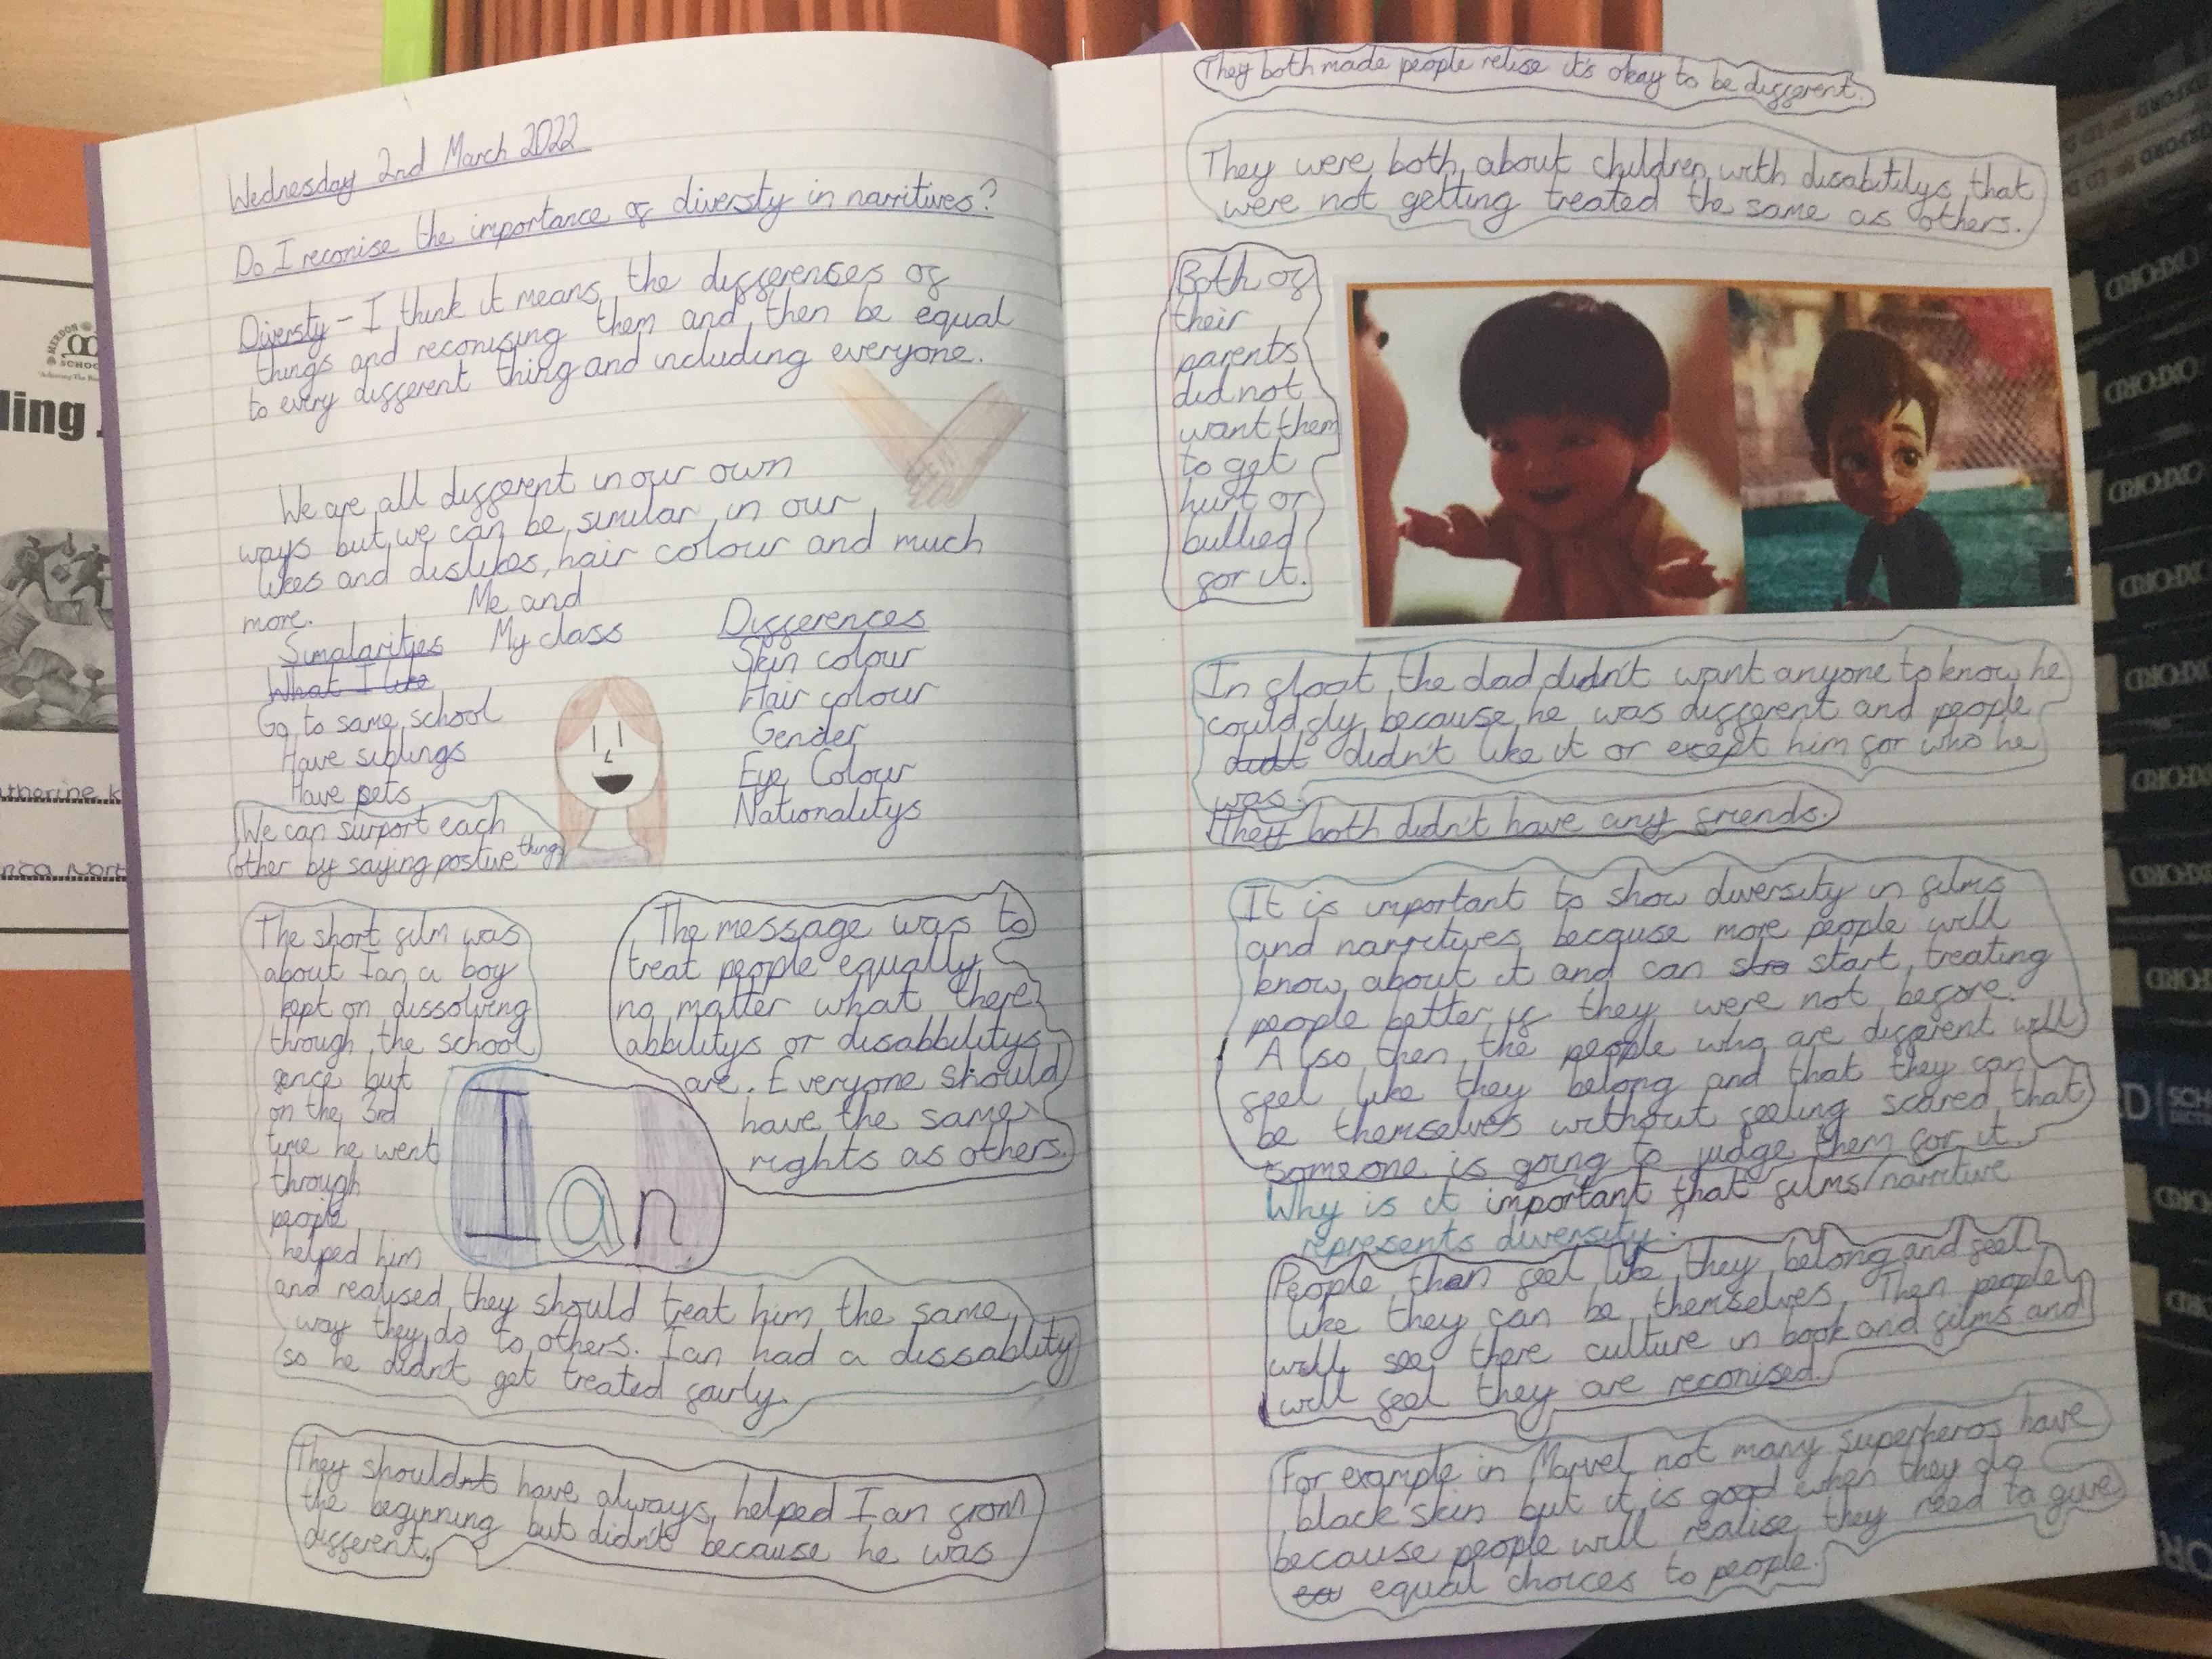 Wednesday 2nd March 2022
Do I reconise the importance of diversty in narritives?
Diversty - I think it means the differenses of
things and reconising them and then be equal
to every different thing and including everyone.
We are all different in our own
ways but we can be similar in our
likes and dislikes, hair colour and much
more.
Me and
My class
Simalarityes
What I like
Go to same school
Have siblings
Have pets
Differences
Skin colour
Hair colour
Gender
Eye Colour
Nationalitys
We can surport each
other by saying postive things
The short film was
about Ian a boy
kept on dissolving
through the school
fence but
on the 3rd
time he went
through
people
helped him
and realised they should treat him the same
way they do to others. Ian had a dissablity
so he didn't get treated fairly.
Ian
The message was to
treat people equally
no matter what there
abbilitys or disabbilitys
are. Everyone should
have the same
rights as others.
They shouldnt have always helped Ian from
the beginning but didn't because he was
different.
They both made people relise it's okay to be different.
They were both about children with disabitilys that
were not getting treated the same as others.
Both of
their
parents
did not
want them
to get
hurt or
bullied
for it.
In float the dad didn't want anyone to know he
could fly because he was different and people
didt didn't like it or exept him for who he
was.
They both didn't have any friends.
It is important to show diversity in films
and narritives because more people will
know about it and can stra start treating
people better if they were not before.
Also then the people who are diffrient will
feel like they belong and that they can
be themselves without feeling scared that
someone is going to judge them for it.
Why is it important that films/narritive
represents diversity?
People than feel like they belong and feel
like they can be themselves. Then people
will see there culture in book and films and
will feel they are reconised.
For example in Marvel not many superheros have
black skin but it is good when they do
because people will realise they need to give
ea equal choices to people.
MERDON
SCHOOL
ling
atherine K
OXFORD
OXFORD